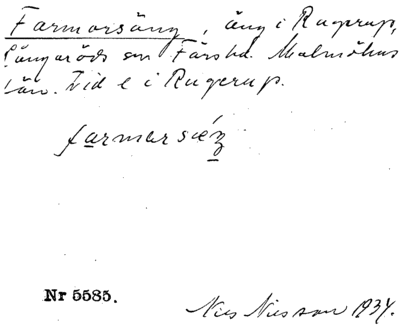 Farmorsäng, äng i Rugerup,
Långaröds sn Färs hd. Malmöhus
län. Vid e i Rugerup.
farmorsæŋ
Nr 5585.
Nils Nilsson 1934.